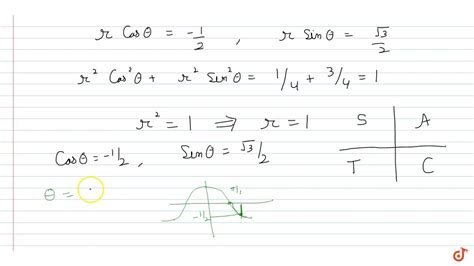 r Cosθ = -1/2 , r Sinθ = √3/2
r² Cos²θ + r² Sin²θ = 1/4 + 3/4 = 1
r² = 1 ⇒ r = 1
S A
T C
Cosθ = -1/2 , Sinθ = √3/2
θ =
-1/2